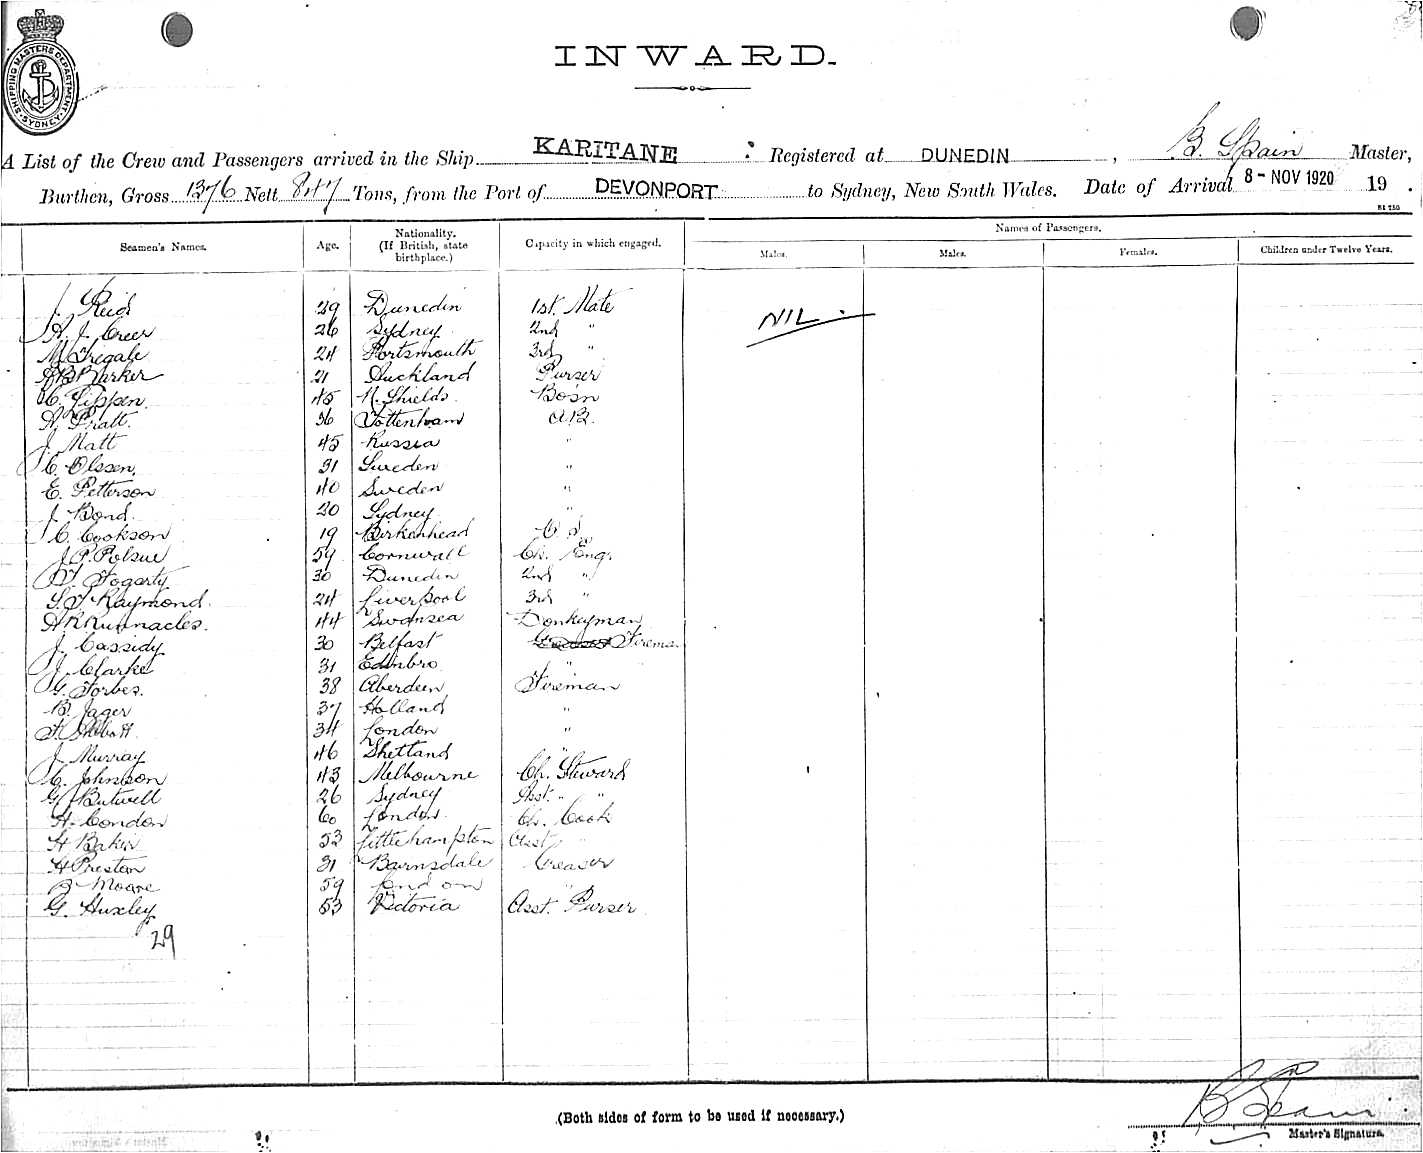 SHIPPING MASTERS DEPARTMENT SYDNEY
INWARD.
A List of the Crew and Passengers arrived in the Ship KARITANE : Registered at DUNEDIN, B. Spain Master,
Burthen, Gross 1376 Nett 847 Tons, from the Port of DEVONPORT to Sydney, New South Wales. Date of Arrival 8 - NOV 1920 19 .
Names of Passengers.
Seamen's Names. Age. Nationality. (If British, state birthplace.) Capacity in which engaged. Males. Males. Females. Children under Twelve Years.
J. Reid 29 Dunedin 1st. Mate NIL.
A. J. Creer 26 Sydney 2nd "
M. Tregale 24 Portsmouth 3rd "
A B Barker 21 Auckland Purser
C. Pippen. 45 N. Shields. Bosn
A. Pratt. 36 Tottenham A.B.
J. Matt 45 Russia "
C. Olssen. 31 Sweden "
E. Petterson 40 Sweden "
J. Bond. 20 Sydney "
C. Cookson 19 Birkenhead O. S.
J. P. Polsue 59 Cornwall Ch. Eng.
Fogarty. 30 Dunedin 2nd "
S. T. Raymond. 24 Liverpool 3rd "
A R Runnacles. 44 Swansea Donkeyman
J. Cassidy 30 Belfast Firema
J. Clarke 31 Edinbro "
G. Forbes. 38 Aberdeen Fireman
B. Jager 37 Holland "
34 London "
J. Murray 46 Shetland "
C. Johnson 43 Melbourne Ch. Steward
G. Butwell 26 Sydney Asst. " "
A. Condon 60 London. Ch. Cook
H Baker 53 Littlehampton Asst "
H Preston 31 Barnsdale Greaser
Moore 59 London "
G. Huxley 53 Victoria Asst. Purser
29
(Both sides of form to be used if necessary.)
B Spain.
Master's Signature.